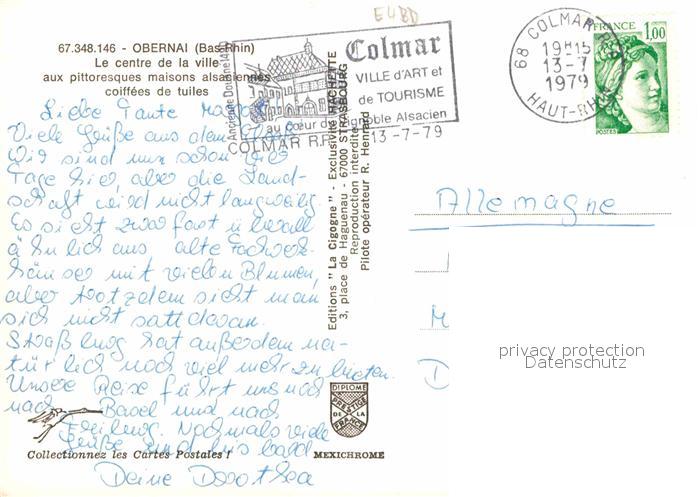 E48D
67.348.146 - OBERNAI (Bas-Rhin)
Le centre de la ville
aux pittoresques maisons alsaciennes
coiffées de tuiles
Ancienne Douane 1480
Colmar
VILLE d'ART et
de TOURISME
au cœur du vignoble Alsacien
COLMAR R.P. 13-7-79
68 COLMAR R.P.
19H15
13-7
1979
HAUT-RHIN
FRANCE
1,00
POSTES
Liebe Tante
Viele Grüße aus dem Elsaß.
Wir sind nun schon vier
Tage hier, aber die Land-
schaft wird nicht langweilig.
Es sieht zwar fast überall
ähnlich aus, alte Fachwerk-
häuser mit vielen Blumen,
aber trotzdem sieht man
sich nicht satt davan.
Straßburg hat außerdem na-
türlich noch viel mehr zu bieten.
Unsere Reise führt uns noch
nach Basel und nach
Freiburg. Nochmals viele
Grüße und bis bald
Deine Dorothea
Editions "La Cigogne" - Exclusivité HACHETTE
3, place de Haguenau - 67000 STRASBOURG
Reproduction interdite
Pilote opérateur R. Henrard
Allemagne
M
D
privacy protection
Datenschutz
DIPLOME
PRESTIGE
DE LA
FRANCE
Collectionnez les Cartes Postales !
MEXICHROME